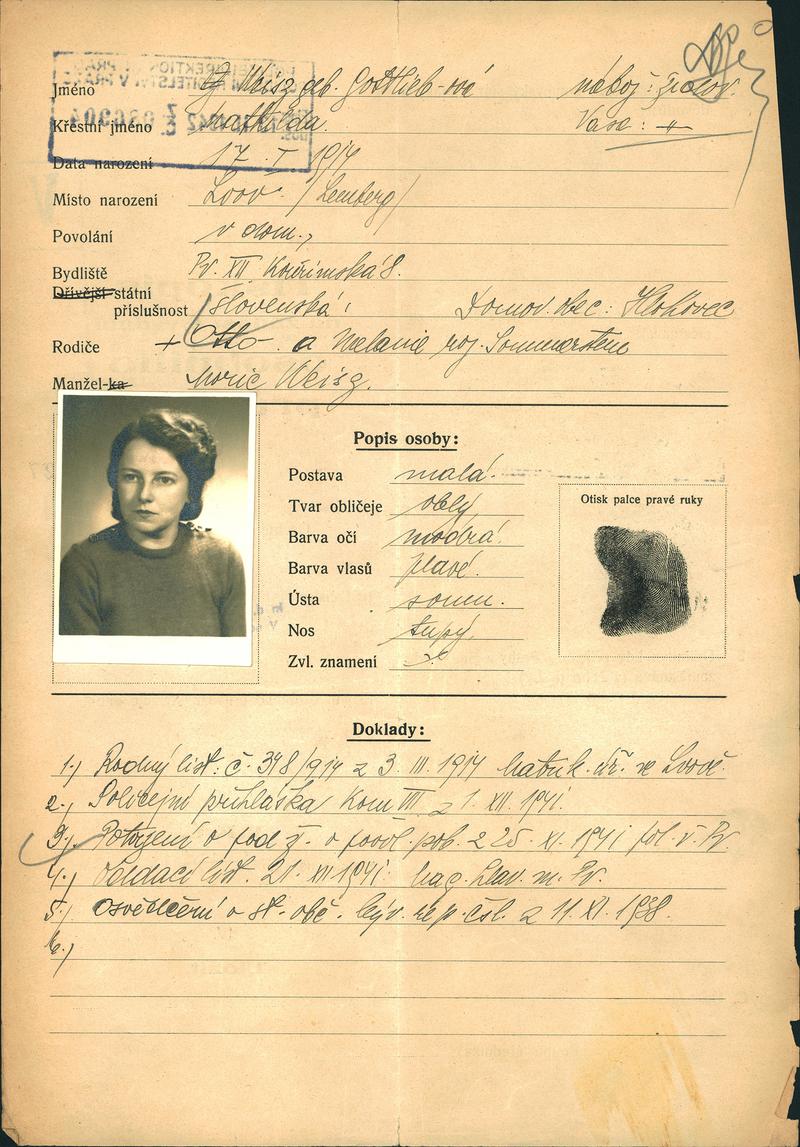 Jméno Weisz geb. Gottlieb-ová nábož: židov.
Křestní jméno Mathilda. Vasa:
Data narození 17. I. 1914
Místo narození Lvov /Lemberg/
Povolání v dom.,
Bydliště Pr. XII Kouřimská 8.
Dřívější státní
příslušnost slovenská Domov. obec: Hlohovec
Rodiče + Otto a Melanie roz. Sommerstein
Manžel-ka Moric Weisz.
Popis osoby:
Postava malá.
Tvar obličeje oblý
Barva očí modrá.
Barva vlasů plavé.
Ústa soum.
Nos tupý
Zvl. znamení
Otisk palce pravé ruky
Doklady:
1.) Rodný list: č. 348/914 z 3. III. 1914 matrik. ve Lvově.
2.) Policejní přihláška Kom VII z 1. XII. 1941.
3.) Potvrzení o pod ž. o povol. pob. z 25. XI. 1941 pol. ř. Pr.
4.) Oddací list. 21. XII 1941. mag. hlav. m. Pr.
5.) Osvědčení o st. obč. býv. rep. čsl. z 11. XI. 1938.
6.)